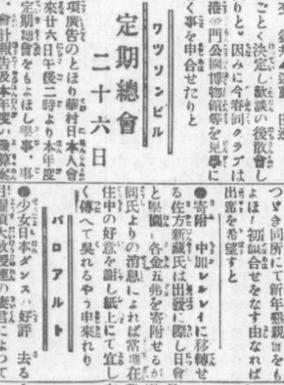 ごとく決定し歓談の後散會し
りと。因みに今春同クラブは
港の門公園博物館等を見學に
く事を申合せたりと
ワツソンビル
定期總會
二十六日
項廣告のとほり華村日本人會
來廿六日午後二時より本年度
定期總會をもよほし學事、事
會計報告及本年度の豫算案
つどき同所にて新年懇親會をも
よほし初顔合せをなす由なれば
出席を希望すと
●寄附 中加レルレイに移轉せ
る佐方
藏氏は出發に際し日會
と學園へ各金五弗を寄附せるが
同氏よりの消息によれば當地在
住中の好意を謝し紙上にて宜し
く傳へて呉れるやう申來れり
パロアルト
●少女日本ダンス好評 去る